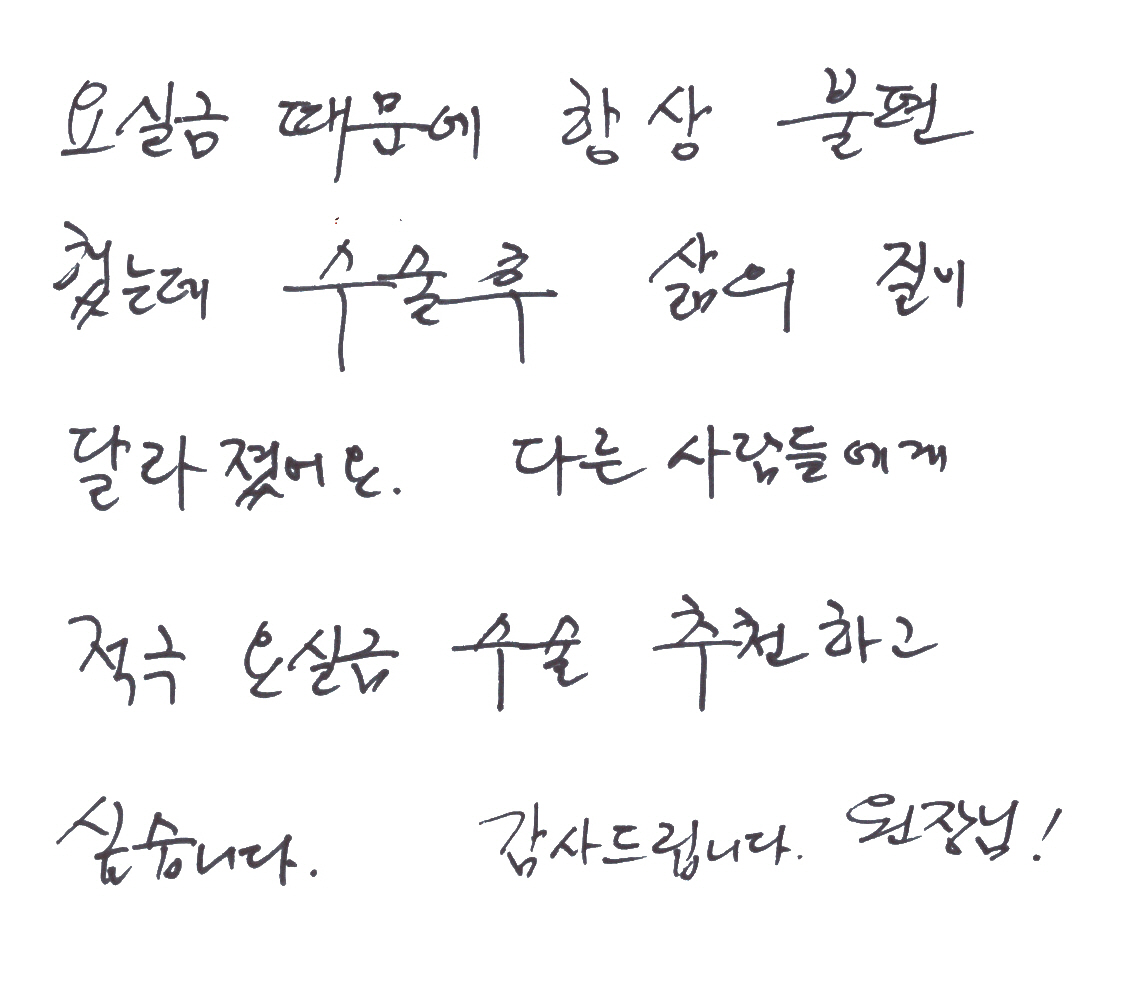 요실금 때문에 항상 불편
했는데 수술후 삶의 질이
달라졌어요. 다른 사람들에게
적극 요실금 수술 추천하고
싶습니다. 감사드립니다. 원장님!